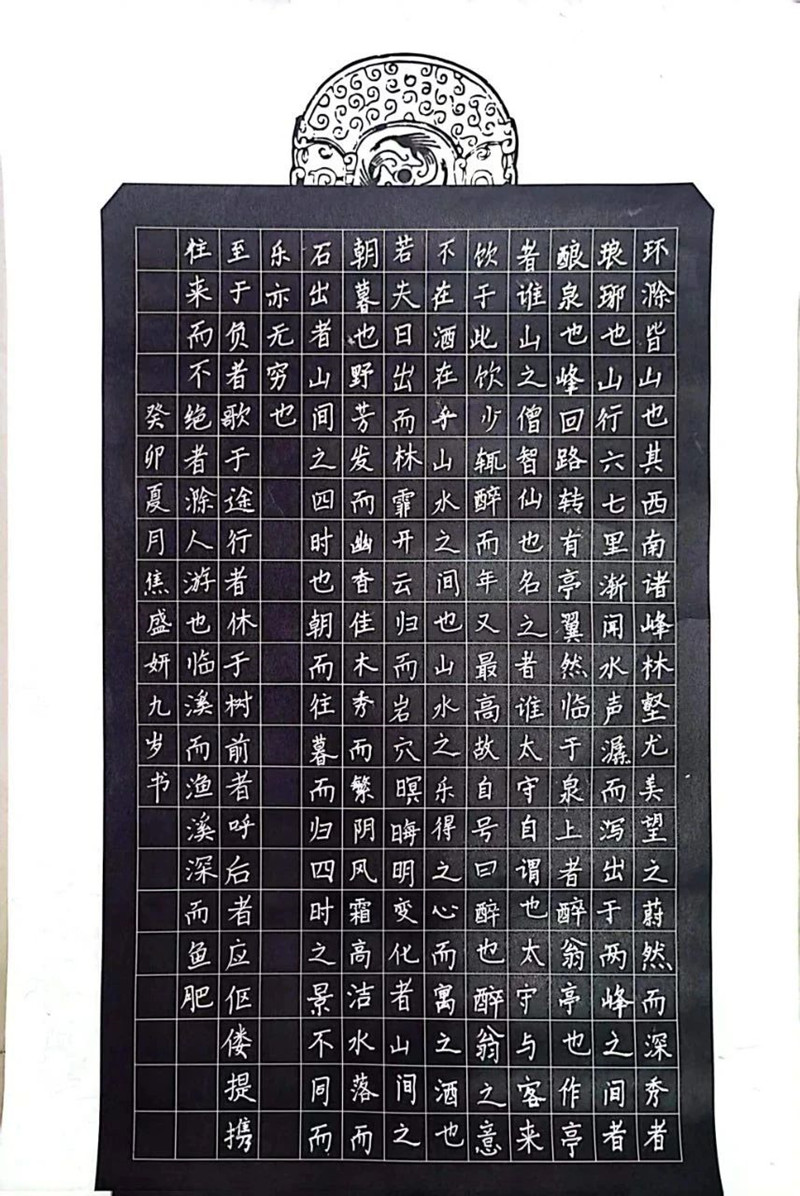 环滁皆山也其西南诸峰林壑尤美望之蔚然而深秀者
琅琊也山行六七里渐闻水声潺而泻出于两峰之间者
酿泉也峰回路转有亭翼然临于泉上者醉翁亭也作亭
者谁山之僧智仙也名之者谁太守自谓也太守与客来
饮于此饮少辄醉而年又最高故自号曰醉也醉翁之意
不在酒在乎山水之间也山水之乐得之心而寓之酒也
若夫日出而林霏开云归而岩穴暝晦明变化者山间之
朝暮也野芳发而幽香佳木秀而繁阴风霜高洁水落而
石出者山间之四时也朝而往暮而归四时之景不同而
乐亦无穷也
至于负者歌于途行者休于树前者呼后者应伛偻提携
往来而不绝者滁人游也临溪而渔溪深而鱼肥
癸卯夏月焦盛妍九岁书